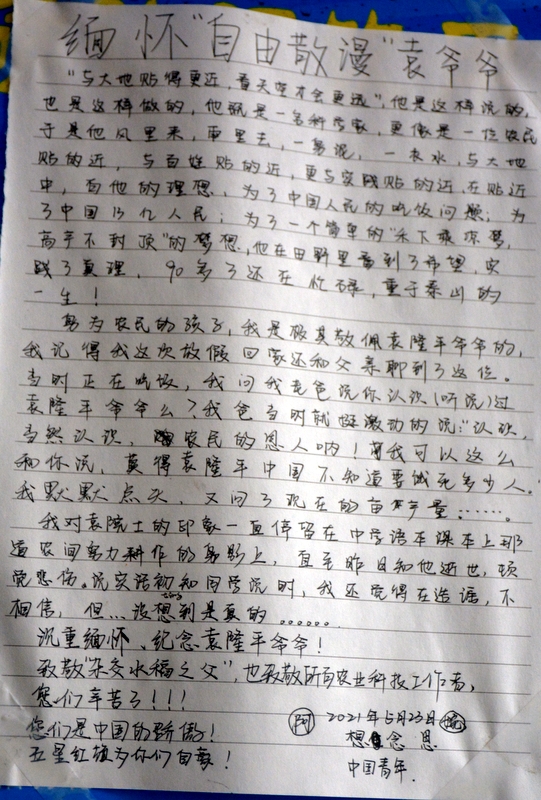 缅怀"自由散漫"袁爷爷
"与大地贴得更近,看天空才会更远",他是这样说的,
也是这样做的,他既是一名科学家,更像是一位农民
于是他风里来,雨里去,一身泥,一衣水,与大地
贴的近,与百姓贴的近,更与实践贴的近,在贴近
中,有他的理想,为了中国人民的吃饭问题;为
了中国13亿人民;为了一个简单的"禾下乘凉梦,
高产不封顶"的梦想,他在田野里看到了希望,实
践了真理,90多了还在忙碌,重于泰山的
一生!
身为农民的孩子,我是极其敬佩袁隆平爷爷的,
我记得我这次放假回家还和父亲聊到了这位。
当时正在吃饭,我问我老爸说你认识(听说)过
袁隆平爷爷么?我爸当时就挺激动的说:"认识,
当然认识,农民的恩人呐!我可以这么
和你说,莫得袁隆平中国不知道要饿死多少人。
我默默点头,又问了现在的亩产量……。
我对袁院士的印象一直停留在中学语文课本上那
道农间努力耕作的身影上,直至昨日知他逝世,顿
觉悲伤。说实话初知同学说时,我还觉得在造谣,不
相信,但…没想到是真的……
沉重缅怀、纪念袁隆平爷爷!
致敬"杂交水稻之父",也致敬所有农业科技工作者,
您们辛苦了!!!
您们是中国的骄傲!
五星红旗为你们自豪!
2021年5月23日
想念恩
中国青年.